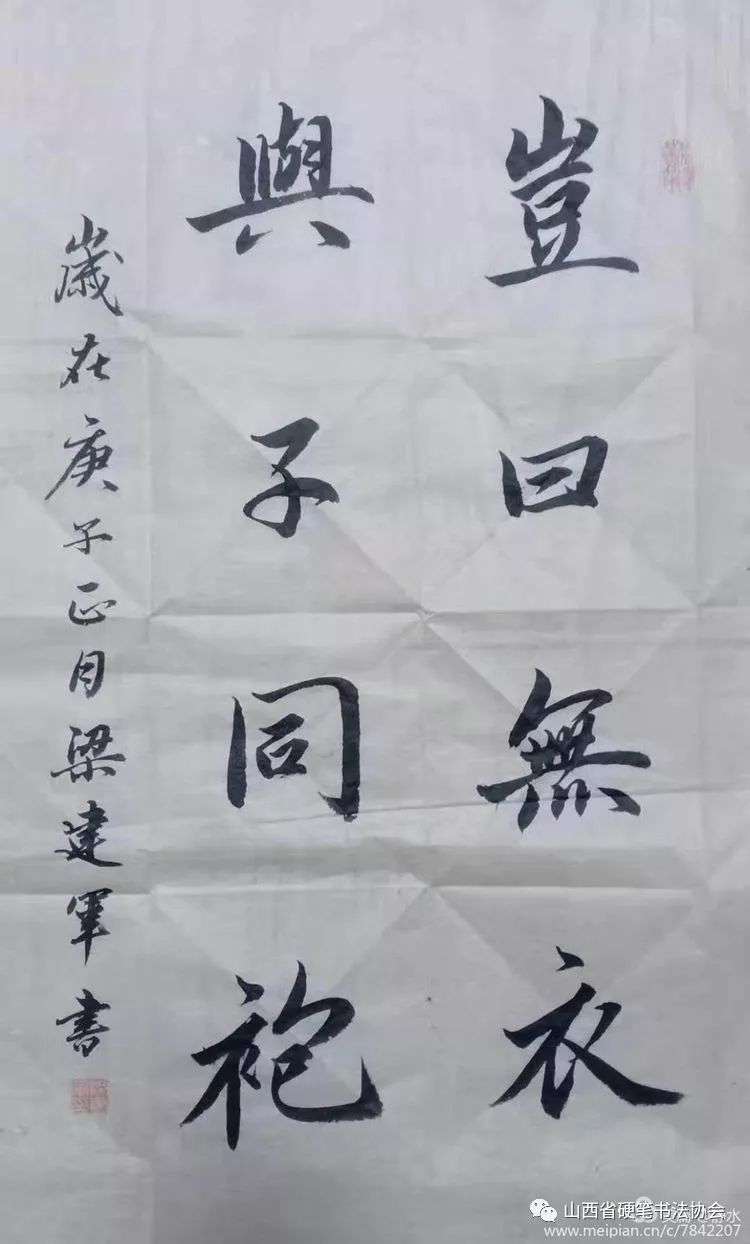 豈曰無衣
與子同袍
歲在庚子正月梁建軍書
山西省硬笔书法协会
www.meipian.cn/c/7842207